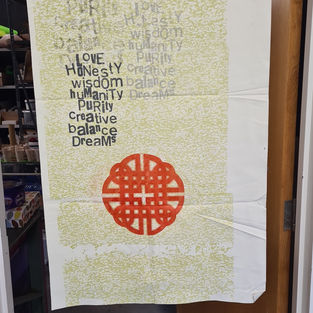 PuRity
Creative
balance
LOVE
HoNesty
wisdom
huMaNiTy
PuRity
Creative
balance
DReaMs
LoVe
HoNesty
wisdom
huMaNiTy
PuRity
Creative
balance
DReaMs